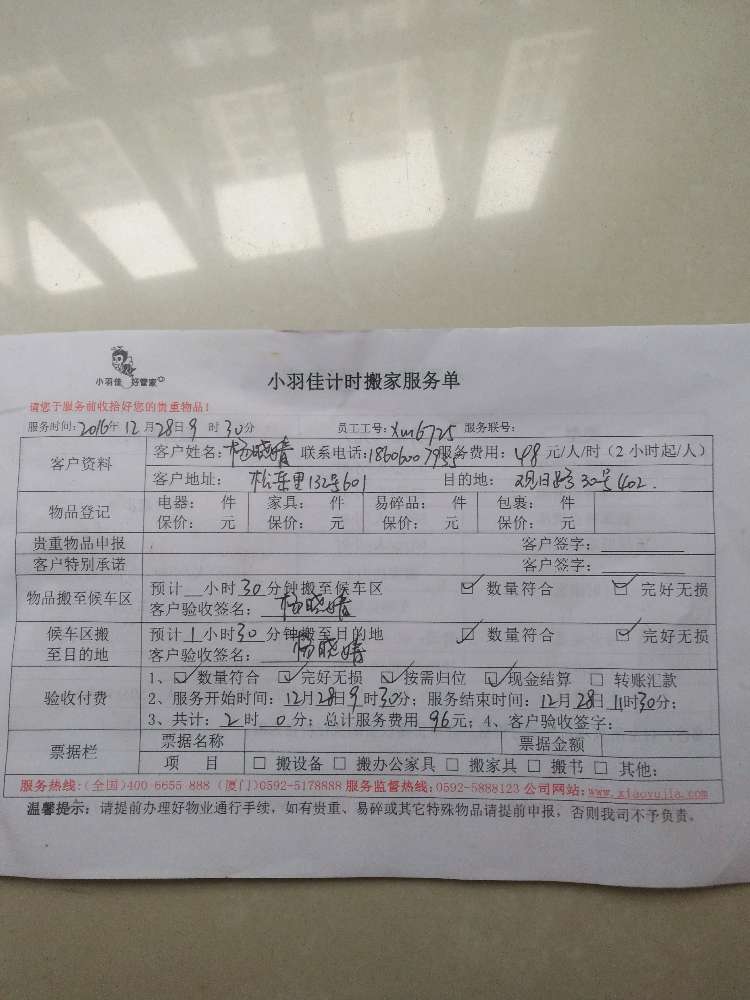 小羽佳 好管家
小羽佳计时搬家服务单
请您于服务前收拾好您的贵重物品！
服务时间：2016年12月28日9时30分 员工工号：xm6725 服务联号：
客户资料 客户姓名：杨晓婧 联系电话：18606007935 服务费用：48元/人/时（2小时起/人）
客户地址：松岳里132号601 目的地：观日路30号402.
物品登记 电器： 件 家具： 件 易碎品： 件 包裹： 件
保价： 元 保价： 元 保价： 元 保价： 元
贵重物品申报 客户签字：
客户特别承诺 客户签字：
物品搬至候车区 预计__小时30分钟搬至候车区 ☑ 数量符合 ☑ 完好无损
客户验收签名：杨晓婧
候车区搬至目的地 预计1小时30分钟搬至目的地 ☑ 数量符合 ☑ 完好无损
客户验收签名：杨晓婧
验收付费 1、☑ 数量符合 ☑ 完好无损 ☑ 按需归位 ☑ 现金结算 □ 转账汇款
2、服务开始时间：12月28日9时30分；服务结束时间：12月28日11时30分；
3、共计：2时0分；总计服务费用96元；4、客户验收签字：
票据栏 票据名称 票据金额
项 目 □ 搬设备 □ 搬办公家具 □ 搬家具 □ 搬书 □ 其他：
服务热线：(全国)400 6655 888 (厦门)0592-5178888 服务监督热线：0592-5888123 公司网站：www.xiaoyujia.com
温馨提示：请提前办理好物业通行手续，如有贵重、易碎或其它特殊物品请提前申报，否则我司不予负责。